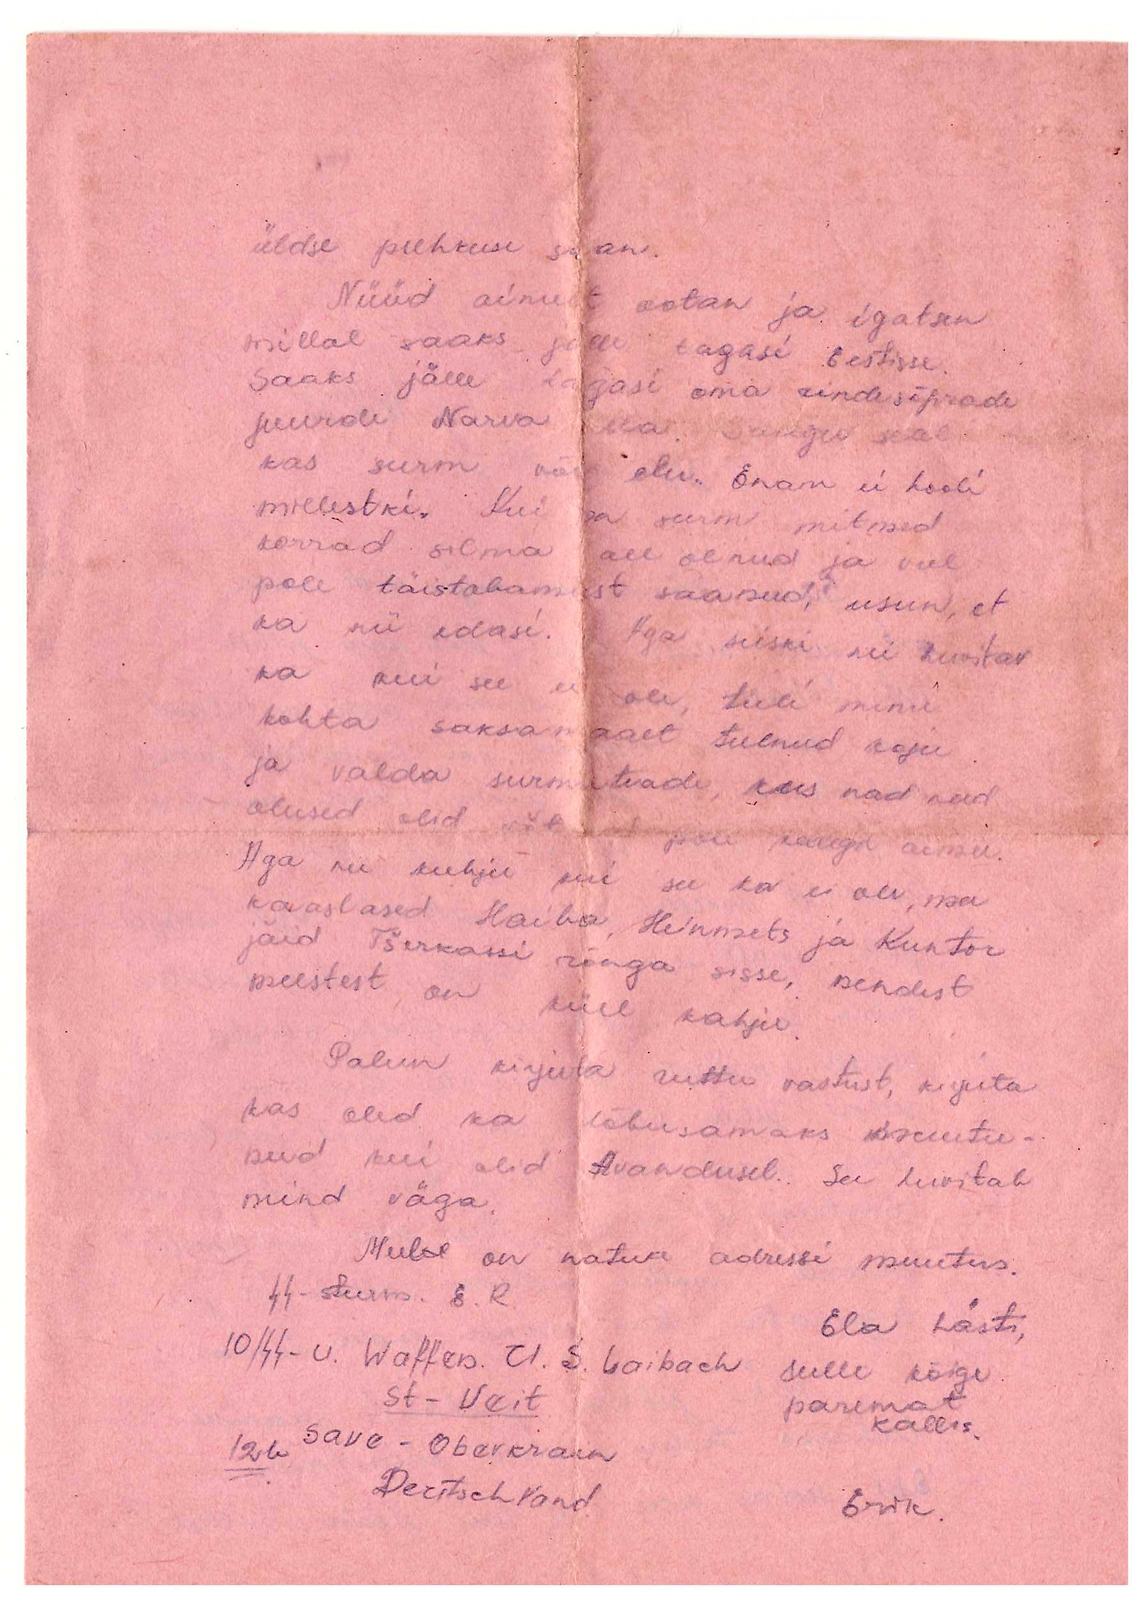 üldse puhkuse saan.
Nüüd ainult ootan ja igatsen
millal saaks jälle tagasi Eestisse.
Saaks jälle tagasi oma rindesõprade
juurde Narva alla. Saagu seal
kas surm või elu. Enam ei hooli
millestki. Kui ka surm mitmed
korrad silma all olnud ja veel
pole täistabamust saanud, usun, et
ka nii edasi. Aga siiski nii huvitav
ka kui see ei ole, tuli minu
kohta saksamaalt tulnud koju
ja valda surmateade, kus nad need
olused olid pole kellegil aimu.
Aga nii kahju kui see ka ei ole, ma
kaaslased Haiba, Heinmets ja Kuntor
jäid Tšerkassi rõnga sisse, nendest
meestest on küll kahju.
Palun kirjuta ruttu vastust, kirjuta
kas oled ka lõbusamaks muutu-
nud kui olid Avandusel. See huvitab
mind väga.
Mulle on natuke adressi muutus.
SS-Sturm. E. R.
10/SS-U. Waffen. U. S. Laibach
St-Veit
12b Save-Oberkrain
Deutschland
Ela hästi,
sulle kõige
paremat
kallis.
Erik.